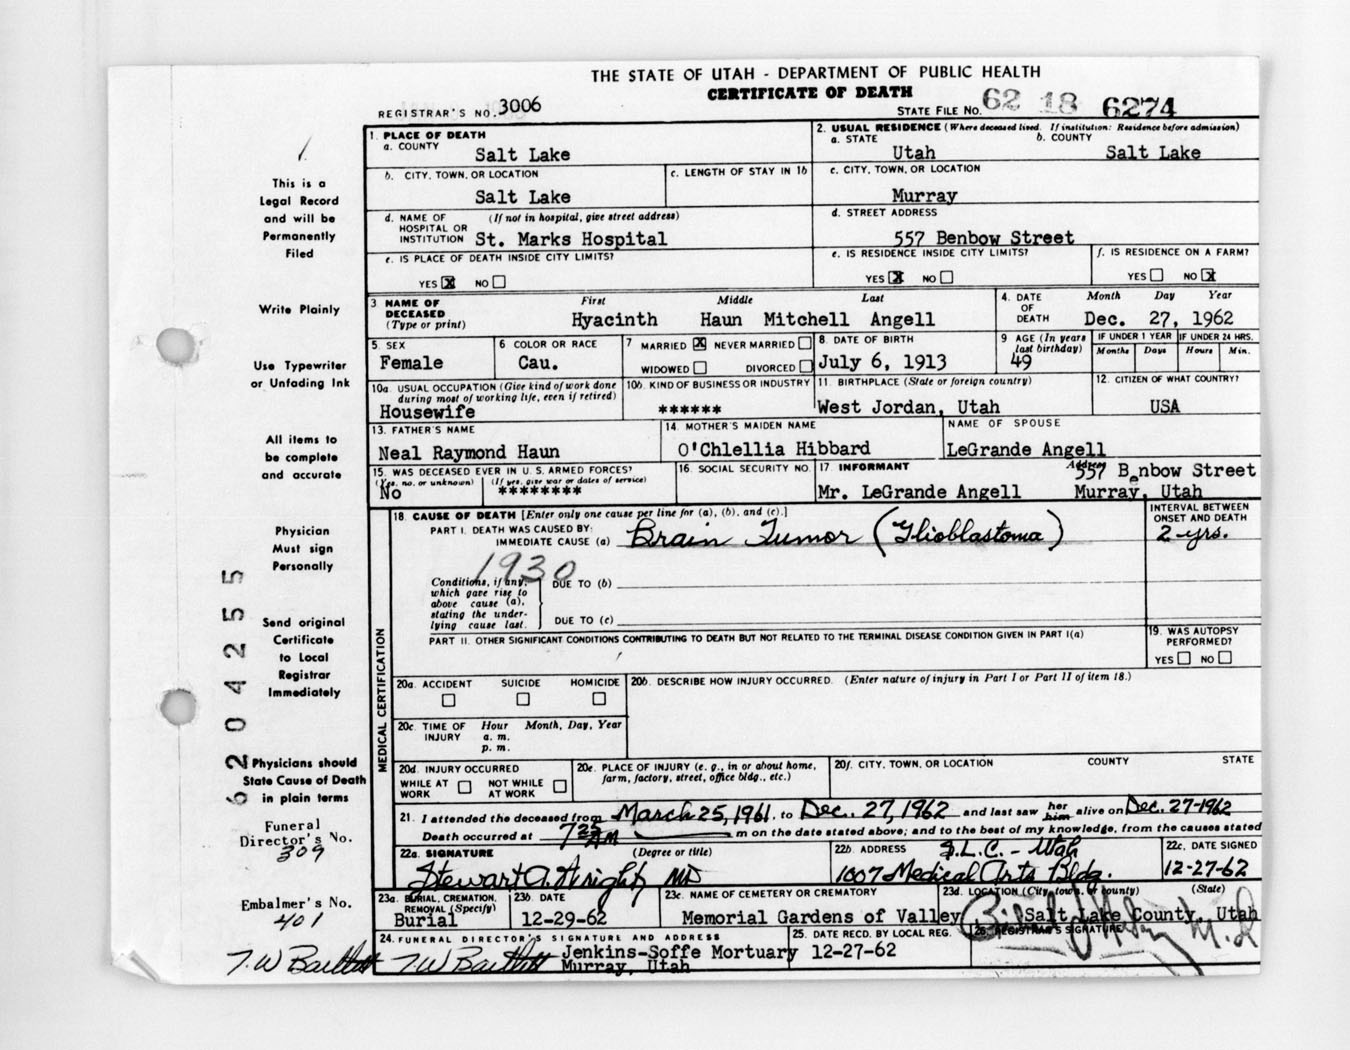 THE STATE OF UTAH - DEPARTMENT OF PUBLIC HEALTH
CERTIFICATE OF DEATH
REGISTRAR'S NO. 3006
STATE FILE NO. 62 18 6274
1. PLACE OF DEATH
a. COUNTY
Salt Lake
2. USUAL RESIDENCE (Where deceased lived. If institution: Residence before admission)
a. STATE b. COUNTY
Utah Salt Lake
b. CITY, TOWN, OR LOCATION
Salt Lake
c. LENGTH OF STAY IN 1b
c. CITY, TOWN, OR LOCATION
Murray
d. NAME OF (If not in hospital, give street address)
HOSPITAL OR
INSTITUTION St. Marks Hospital
d. STREET ADDRESS
557 Benbow Street
e. IS PLACE OF DEATH INSIDE CITY LIMITS?
YES X NO
e. IS RESIDENCE INSIDE CITY LIMITS?
YES X NO
f. IS RESIDENCE ON A FARM?
YES NO X
3 NAME OF First Middle Last
DECEASED
(Type or print) Hyacinth Haun Mitchell Angell
4. DATE Month Day Year
OF
DEATH Dec. 27, 1962
5. SEX
Female
6 COLOR OR RACE
Cau.
7 MARRIED X NEVER MARRIED
WIDOWED DIVORCED
8. DATE OF BIRTH
July 6, 1913
9 AGE (In years
last birthday)
49
IF UNDER 1 YEAR IF UNDER 24 HRS.
Months Days Hours Min.
10a. USUAL OCCUPATION (Give kind of work done
during most of working life, even if retired)
Housewife
10b. KIND OF BUSINESS OR INDUSTRY
******
11. BIRTHPLACE (State or foreign country)
West Jordan, Utah
12. CITIZEN OF WHAT COUNTRY?
USA
13. FATHER'S NAME
Neal Raymond Haun
14. MOTHER'S MAIDEN NAME
O'Chlellia Hibbard
NAME OF SPOUSE
LeGrande Angell
15. WAS DECEASED EVER IN U.S. ARMED FORCES?
(Yes, no, or unknown) (If yes, give war or dates of service)
No ********
16. SOCIAL SECURITY NO.
17. INFORMANT Address
557 Benbow Street
Mr. LeGrande Angell Murray, Utah
MEDICAL CERTIFICATION
18. CAUSE OF DEATH [Enter only one cause per line for (a), (b), and (c).]
PART I. DEATH WAS CAUSED BY:
IMMEDIATE CAUSE (a) Brain Tumor (Glioblastoma)
INTERVAL BETWEEN
ONSET AND DEATH
2 yrs.
1930
Conditions, if any, DUE TO (b)
which gave rise to
above cause (a),
stating the under-
lying cause last. DUE TO (c)
PART II. OTHER SIGNIFICANT CONDITIONS CONTRIBUTING TO DEATH BUT NOT RELATED TO THE TERMINAL DISEASE CONDITION GIVEN IN PART I(a)
19. WAS AUTOPSY
PERFORMED?
YES NO
20a. ACCIDENT SUICIDE HOMICIDE
20b. DESCRIBE HOW INJURY OCCURRED. (Enter nature of injury in Part I or Part II of item 18.)
20c. TIME OF Hour Month, Day, Year
INJURY a. m.
p. m.
20d. INJURY OCCURRED
WHILE AT NOT WHILE
WORK AT WORK
20e. PLACE OF INJURY (e. g., in or about home,
farm, factory, street, office bldg., etc.)
20f. CITY, TOWN, OR LOCATION COUNTY STATE
21. I attended the deceased from March 25, 1961, to Dec. 27, 1962 and last saw her him alive on Dec. 27-1962
Death occurred at 7 25 AM m on the date stated above; and to the best of my knowledge, from the causes stated
22a. SIGNATURE (Degree or title)
Stewart A. Wright MD
22b. ADDRESS S.L.C. - Utah
1007 Medical Arts Bldg.
22c. DATE SIGNED
12-27-62
23a. BURIAL, CREMATION,
REMOVAL (Specify)
Burial
23b. DATE
12-29-62
23c. NAME OF CEMETERY OR CREMATORY
Memorial Gardens of Valley
23d. LOCATION (City, town, or county) (State)
Salt Lake County, Utah
24. FUNERAL DIRECTOR'S SIGNATURE AND ADDRESS
T. W Bartlett Jenkins-Soffe Mortuary
Murray, Utah
25. DATE RECD. BY LOCAL REG.
12-27-62
26. REGISTRAR'S SIGNATURE
M.D.
This is a
Legal Record
and will be
Permanently
Filed
Write Plainly
Use Typewriter
or Unfading Ink
All items to
be complete
and accurate
Physician
Must sign
Personally
Send original
Certificate
to Local
Registrar
Immediately
Physicians should
State Cause of Death
in plain terms
Funeral
Director's No.
309
Embalmer's No.
401
T. W Bartlett
6204255